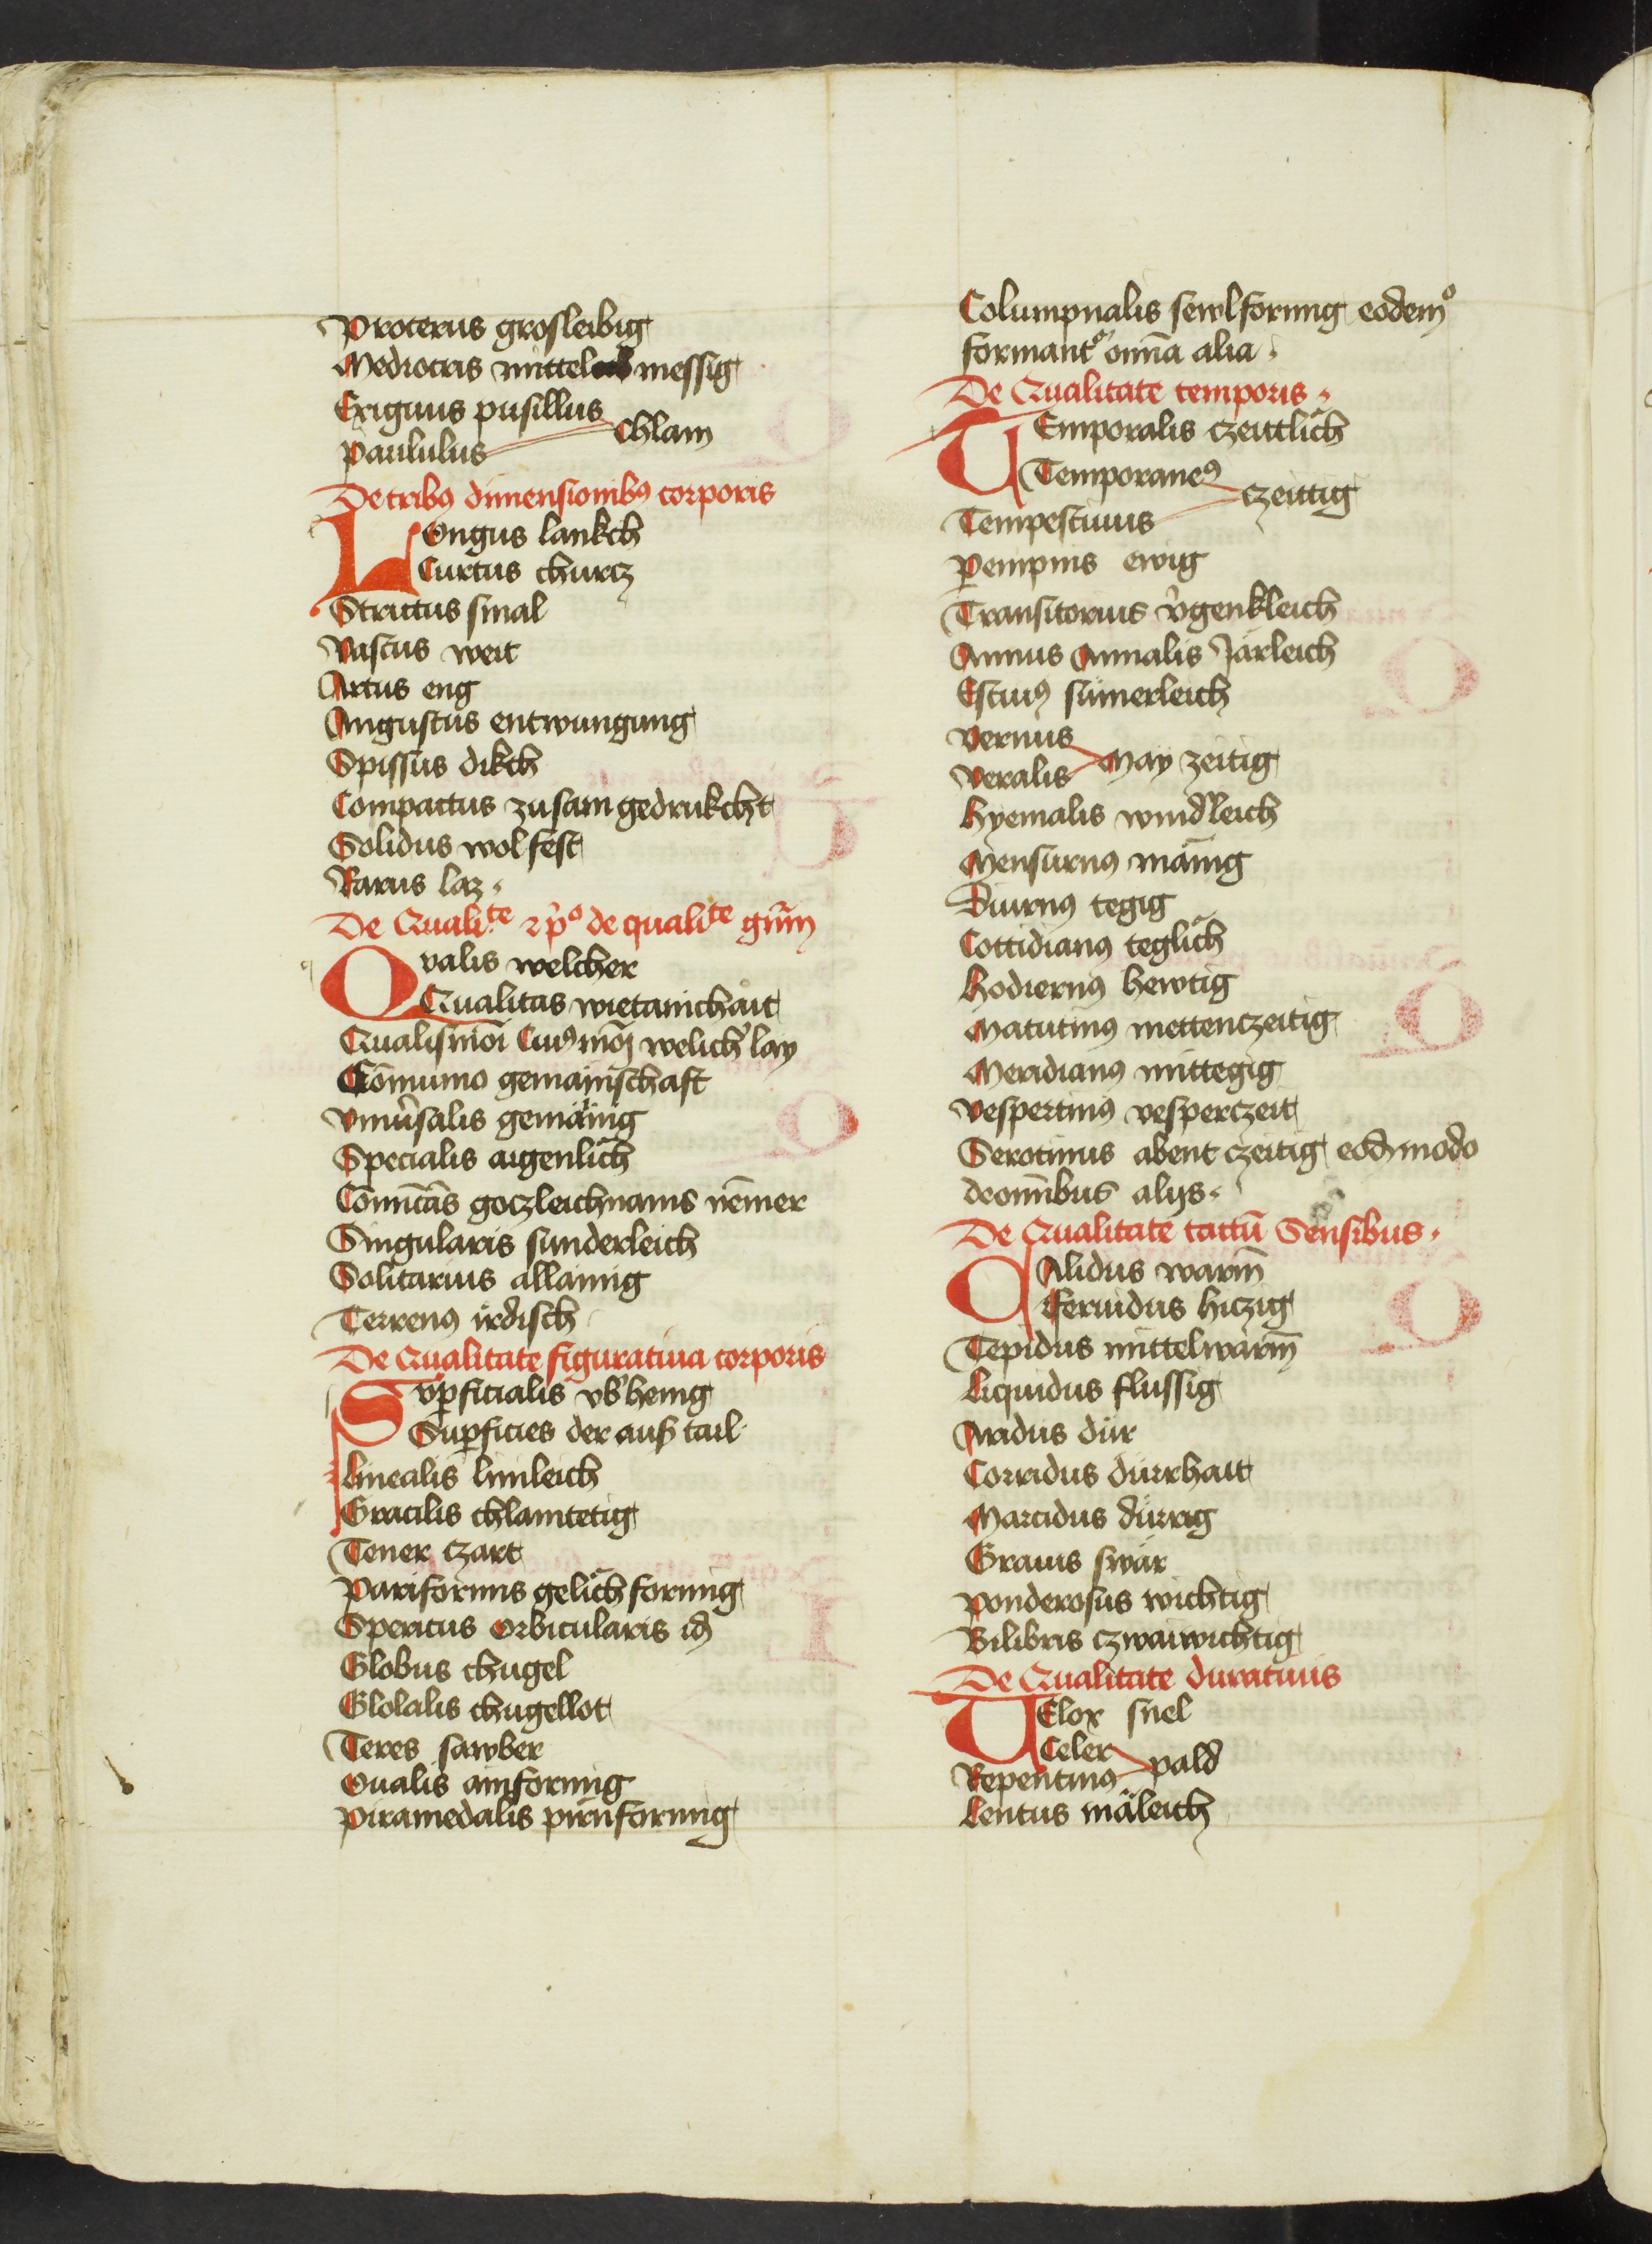 Procerus grosleibig
Mediocris mittel messig
Exiguus pusillus
Paululus chlam
De tribꝯ dimensionibꝯ corporis
Longus lankch
Curtus churcz
Strictus smal
Vastus weit
Artus eng
Angustus entwungung
Spissus dikch
Compactus zusam gedrukcht
Solidus wol fest
Rarus laz
De Qualite  de qualite
Qualis welcher
Qualitas wietanichait
Qualismōi Cuiꝯmōi welicħ lay
Cōmunio gemainschaft
Vniu͛salis gemainig
Specialis aigenlich
 goczleichnams nēmer
Singularis sunderleich
Solitarius allainig
Terrenꝯ irdisch
De Qualitate figuratiua corporis
Suꝑficialis vb͛hemg
Suꝑficies der auß tail
Linealis linleich
Gracilis chlamtetig
Tener czart
Pariformis gelich formig
Spericus Orbicularis id
Globus chugel
Glolalis chugellot
Teres sawber
Oualis aiiformig
Piramedalis pirnformig
Columpnalis sewlformig eodemͦ
formant͛ omīa alia
De Qualitate temporis
Temporalis czeittlich
Temporaneꝯ
Tempestiuus czeittig
Ꝑempnis ewig
Transitorius v͛genkleich
Annus Annalis Järleich
Estiuꝯ sümerleich
Vernus
Veralis May zeitig
Hyemalis wind͛leich
Mensurnꝯ mānig
Diurnꝯ tegig
Cottidianꝯ teglich
Hodiernꝯ hewtig
Matutinꝯ mettenczeitig
Meridianꝯ mittegig
Vespertinꝯ vesperczeit
Serotinus abent czeitig eodmodo
de omībus alijs
De Qualitate tactū Sensibus
Calidus warm̄
Feruidus hiczig
Tepidus mittelwarm̄
Liquidus flussig
Aridus dür
Corridus dürrhait
Marcidus dürrig
Grauis swär
Ponderosus wichtig
Bilibris czwaiwichtig
De Qualitate duratiuis
Velox snel
Celer
Repentinꝯ pald
Lentus mäleich